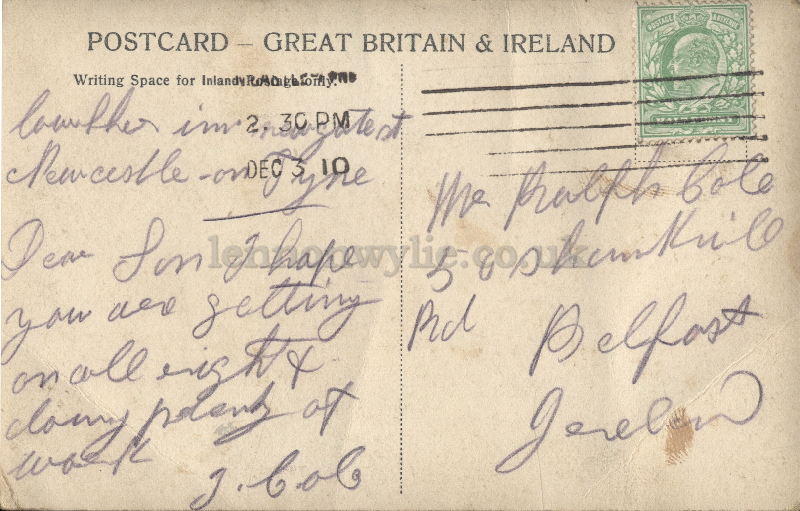 POSTCARD – GREAT BRITAIN & IRELAND
Writing Space for Inland Postage only.
2. 30 PM
DEC 3 10
POSTAGE REVENUE
Lowther inn newgate st
Newcastle-on Tyne
Dear Son I hope
you are getting
on all right &
doing plenty of
work
J. Cole
Mr Ralph Cole
50 Shankhill
Rd Belfast
Ireland
lennonwylie.co.uk